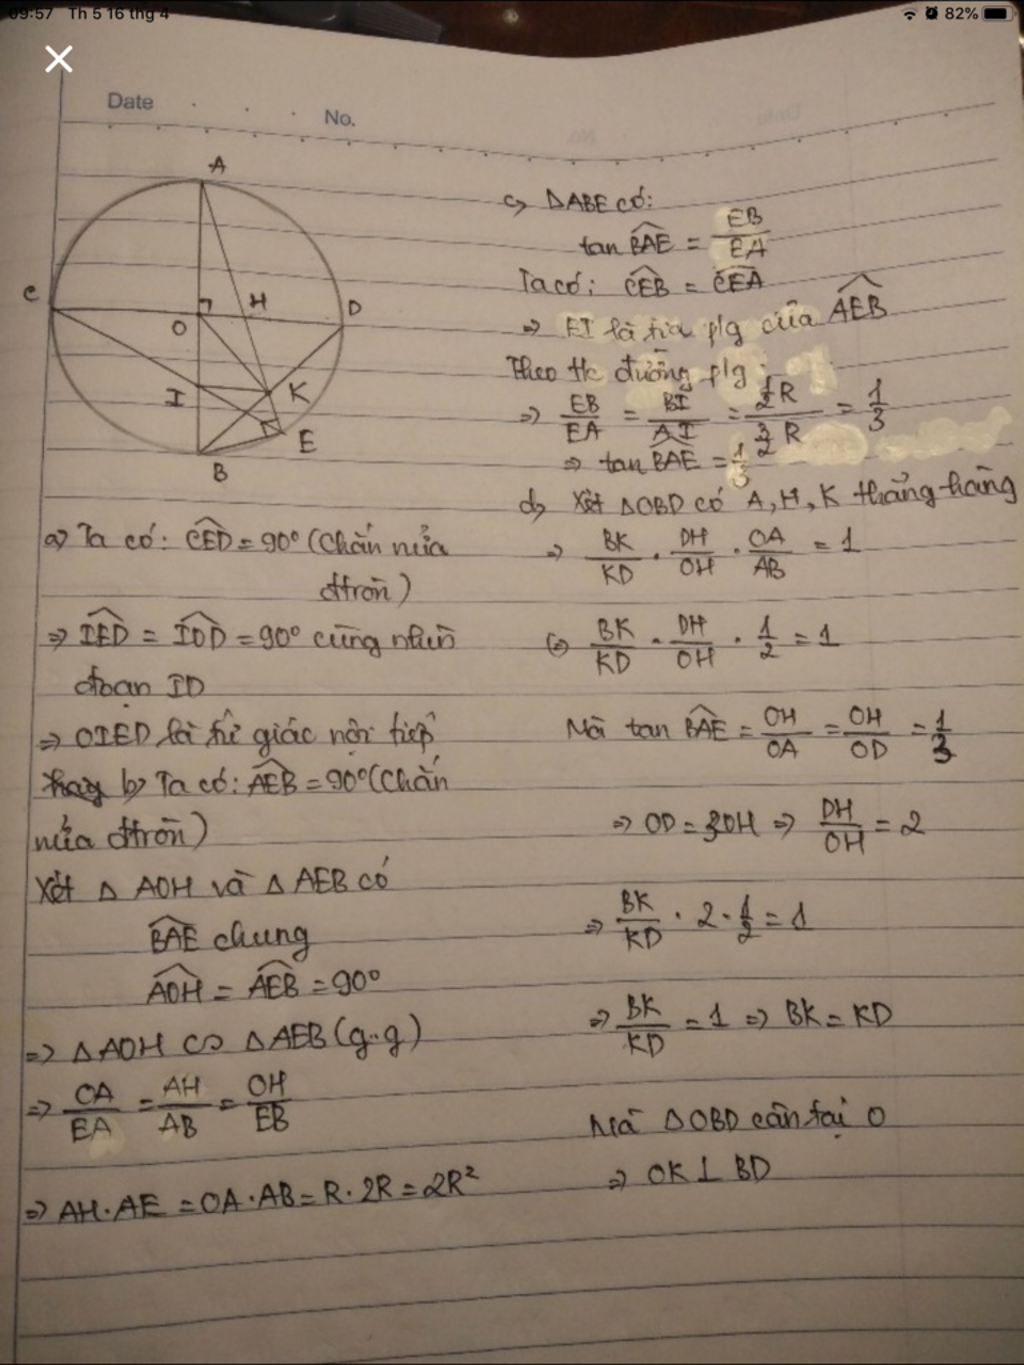 09:57 Th 5 16 thg 4
82%
Date
No.
A
C
O
H
D
I
K
E
B
a) Ta có: CED = 90° (Chắn nửa
đtròn)
=> IED = IOD = 90° cùng nhìn
đoạn ID
=> OIED là tứ giác nội tiếp
b) Ta có: AEB = 90° (Chắn
nửa đtròn)
Xét Δ AOH và Δ AEB có
BAE chung
AOH = AEB = 90°
=> ΔAOH ∽ ΔAEB (g.g)
=> OA/EA = AH/AB = OH/EB
=> AH.AE = OA.AB = R.2R = 2R²
c) ΔABE có:
tan BAE = EB/EA
Ta có: CEB = CEA
=> EI là tia p/g của AEB
Theo tc đường p/g:
=> EB/EA = BI/AI = 1/2 R / 3/2 R = 1/3
=> tan BAE = 1/3
d) Xét ΔOBD có A, H, K thẳng hàng
=> BK/KD . DH/OH . OA/AB = 1
(=) BK/KD . DH/OH . 1/2 = 1
Mà tan BAE = OH/OA = OH/OD = 1/3
=> OD = 3OH => DH/OH = 2
=> BK/KD . 2 . 1/2 = 1
=> BK/KD = 1 => BK = KD
Mà ΔOBD cân tại O
=> OK ⊥ BD